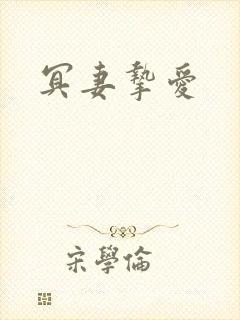 冥妻摯愛
宋學倫